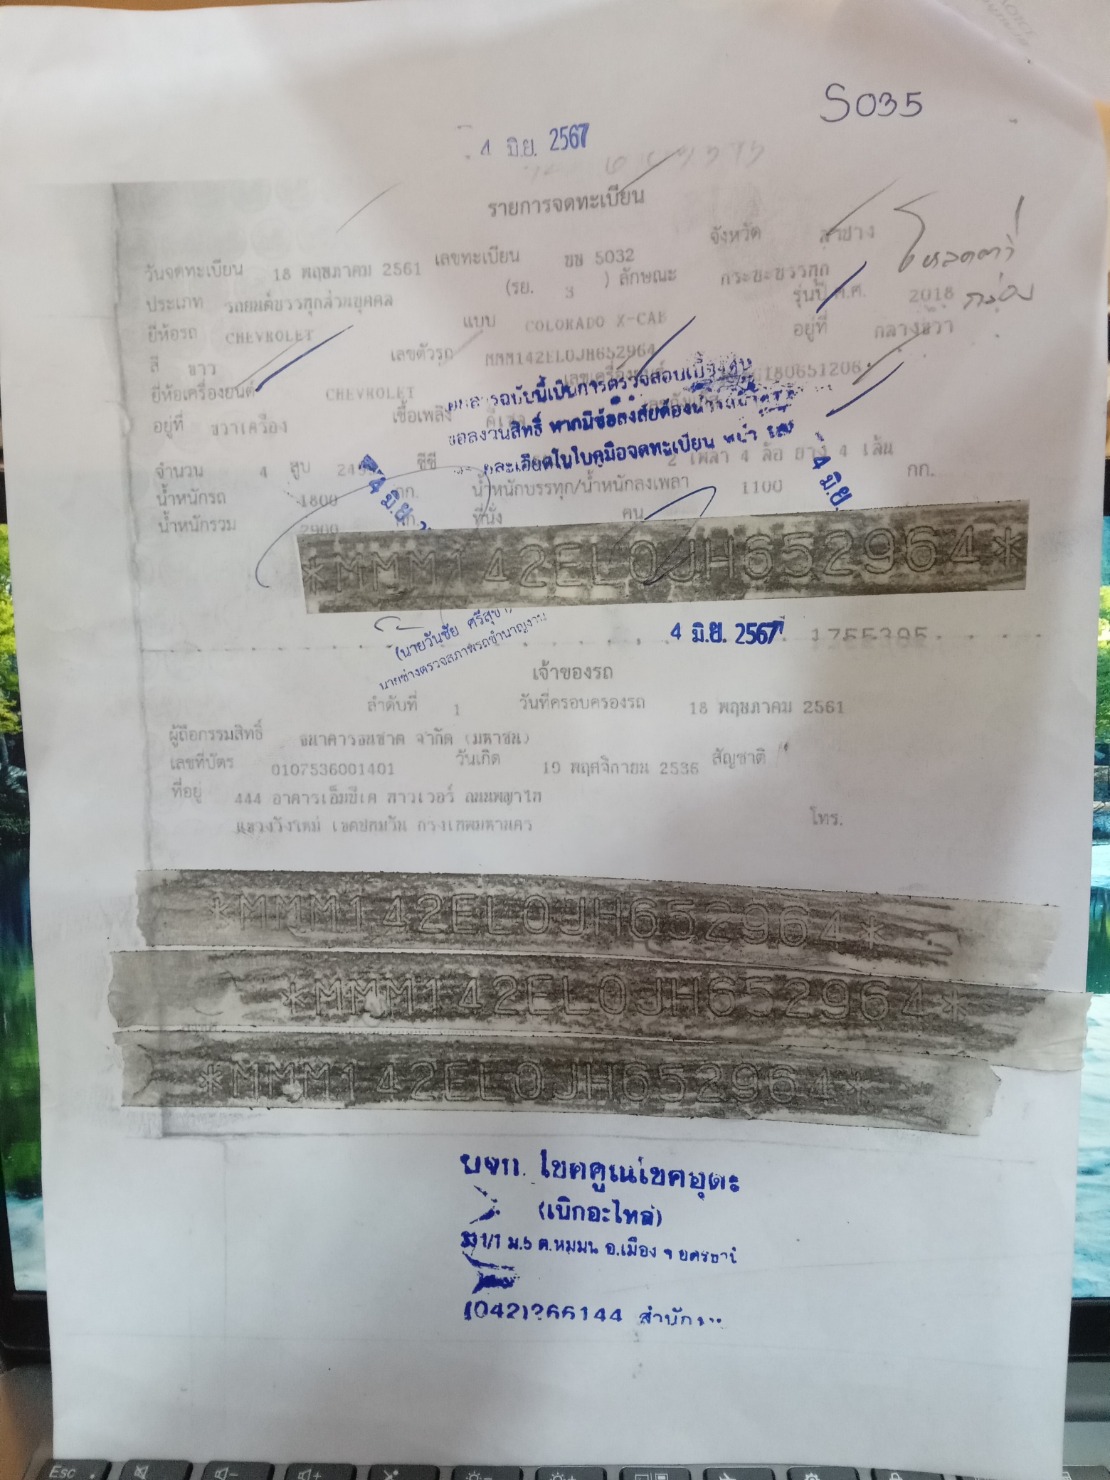 S035
4 มิ.ย. 2567
รายการจดทะเบียน
วันจดทะเบียน 18 พฤษภาคม 2561 เลขทะเบียน 5032 จังหวัด ลำปาง
ประเภท รถยนต์บรรทุกส่วนบุคคล (รย. 3 ) ลักษณะ กระบะบรรทุก
ยี่ห้อรถ CHEVROLET แบบ COLORADO X-CAB รุ่นปี ค.ศ. 2018
สี ขาว เลขตัวรถ MMM142EL0JH652964 อยู่ที่ กลางขวา
ยี่ห้อเครื่องยนต์ CHEVROLET 180651206
อยู่ที่ ขวาเครื่อง เชื้อเพลิง ดีเซล
เอกสารฉบับนี้เป็นการตรวจสอบเบื้องต้น
ของงานสิทธิ์ หากมีข้อสงสัยต้อง
ละเอียดในใบคู่มือจดทะเบียน หน้า
จำนวน 4 สูบ ซีซี 2 เพลา 4 ล้อ ยาง 4 เส้น
น้ำหนักรถ 1800 กก. น้ำหนักบรรทุก/น้ำหนักลงเพลา 1100 กก.
น้ำหนักรวม 2900 กก. ที่นั่ง คน
4 มิ.ย.
4 มิ.ย.
*MMM142EL0JH652964*
(นายวันชัย
นายช่างตรวจสภาพรถชำนาญงาน
4 มิ.ย. 2567
เจ้าของรถ
ลำดับที่ 1 วันที่ครอบครองรถ 18 พฤษภาคม 2561
ผู้ถือกรรมสิทธิ์ ธนาคารธนชาต จำกัด (มหาชน)
เลขที่บัตร 0107536001401 วันเกิด 19 พฤศจิกายน 2536 สัญชาติ
ที่อยู่ 444 อาคารเอ็มบีเค ทาวเวอร์ ถนนพญาไท
แขวงวังใหม่ เขตปทุมวัน กรุงเทพมหานคร โทร.
*MMM142EL0JH652964*
*MMM142EL0JH652964*
*MMM142EL0JH652964*
(เบิกอะไหล่)
1/1 ม.5 ต.หมูม่น อ.เมือง จ
(042)266144 สำนัก
Esc